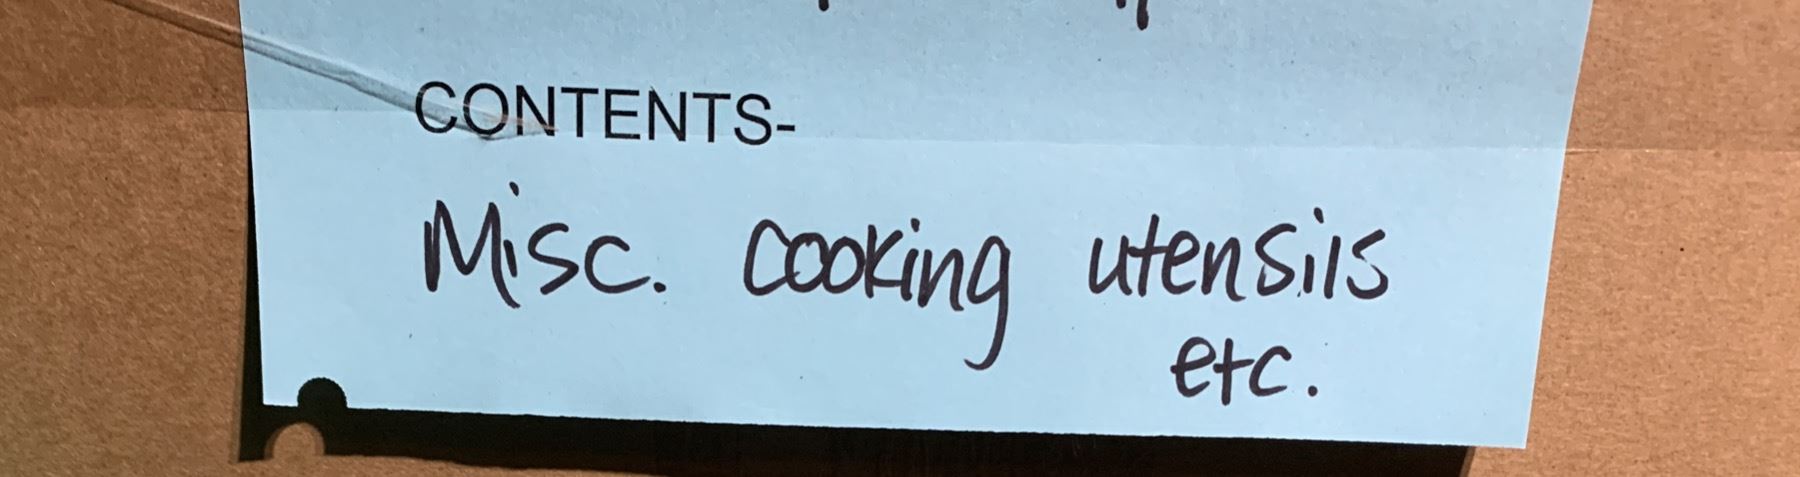 CONTENTS-
Misc. cooking utensils
etc.